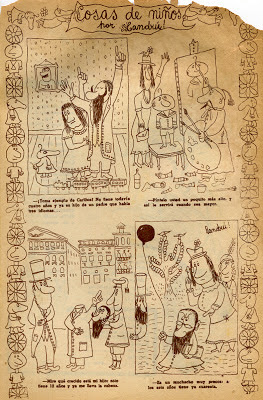 Cosas de niños
por Landrú
—¡Toma ejemplo de Carlitos! No tiene todavía
cuatro años y ya es hijo de un padre que habla
tres idiomas...
—Píntelo usted un poquito más alto, y
así le servirá cuando sea mayor.
—Mire qué crecido está mi hijo: sólo
tiene 10 años y ya me lleva la cabeza.
Landrú
—Es un muchacho muy precoz: a
los seis años tiene ya cuarenta.